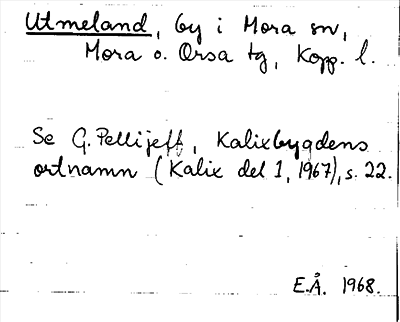 Utmeland, by i Mora sn,
Mora o. Orsa tg, Kopp. l.
Se G. Pellijeff, Kalixbygdens
ortnamn (Kalix del 1, 1967), s. 22.
E.Å. 1968.